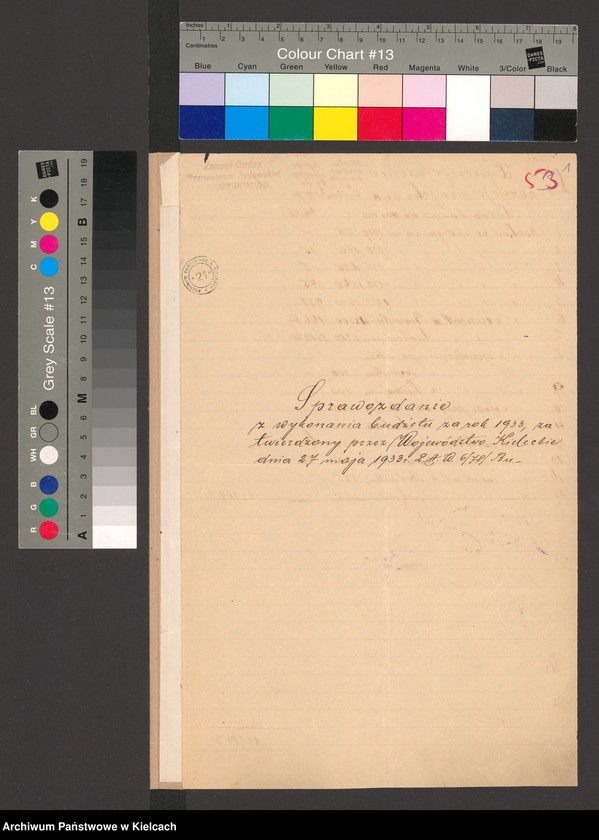 Inches 1 2 3 4 5 6 7 8
Centimetres 1 2 3 4 5 6 7 8 9 10 11 12 13 14 15 16 17 18 19
Colour Chart #13
DANES PICTA
Blue Cyan Green Yellow Red Magenta White 3/Color Black
Grey Scale #13
DANES PICTA
R G B WH GR BL C M Y K
A 1 2 3 4 5 6 M 8 9 10 11 12 13 14 15 B 17 18 19
Zarząd Gminy
1
53
21
Sprawozdanie
z wykonania budżetu za rok 1933, za
twierdzony przez Województwo Kieleckie
dnia 27 maja 1933r.
Archiwum Państwowe w Kielcach